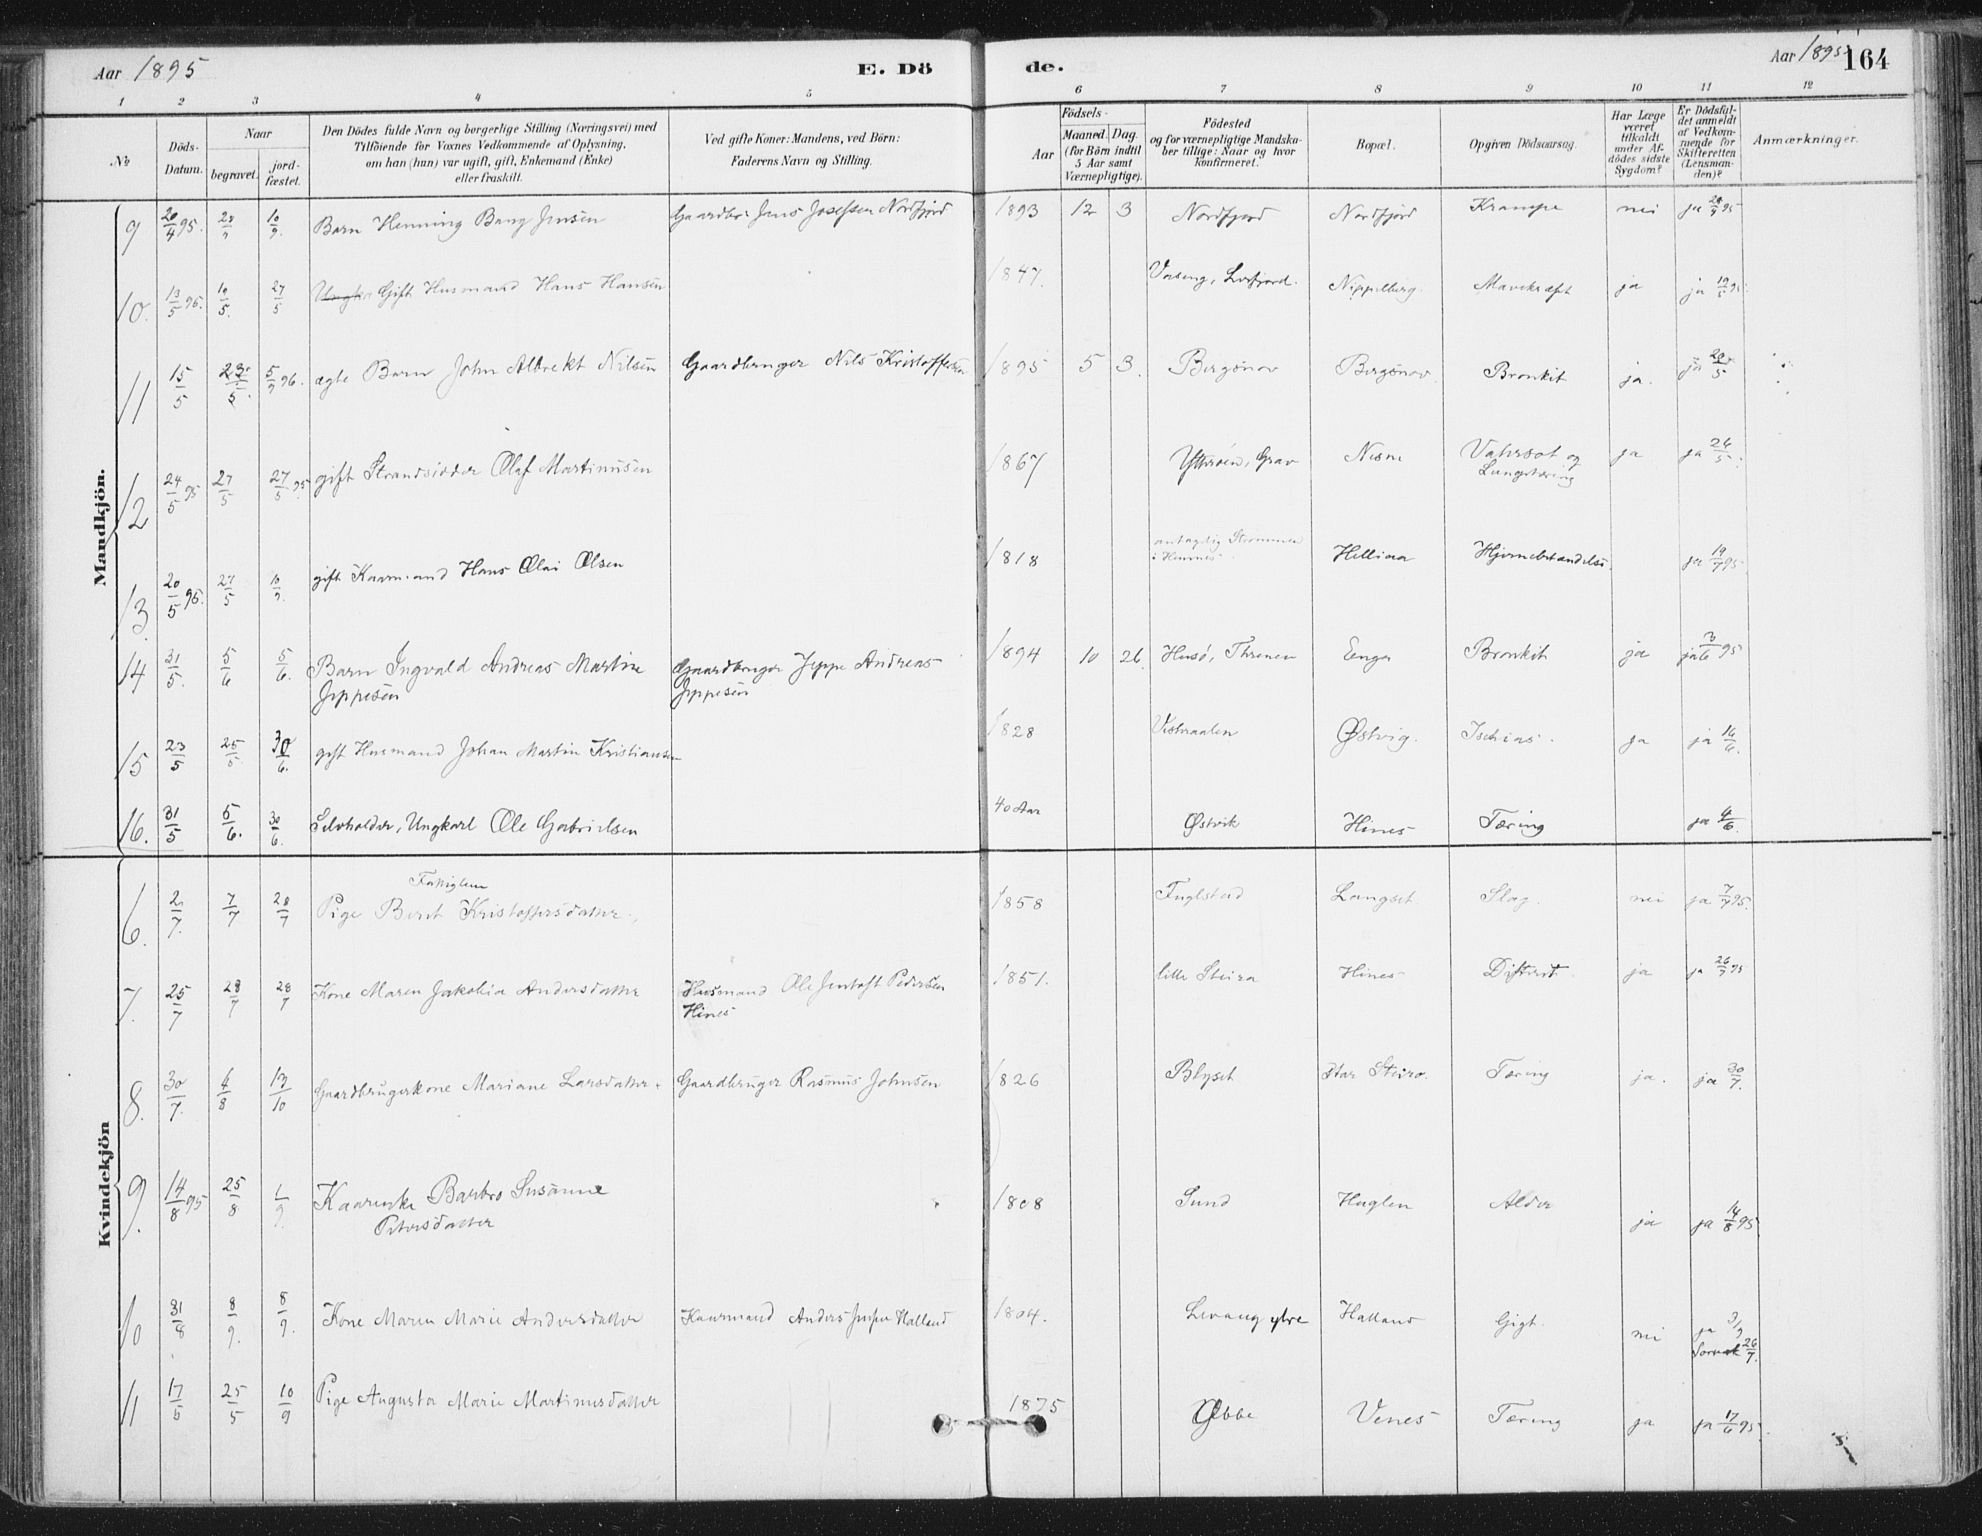 Aar 1895
E. Dö
de.
Aar 1895
164
1 2 3 4 5 6 7 8 9 10 11 12
No
Döds-Datum.
Naar
begravet.
jord-fæstet.
Den Dödes fulde Navn og borgerlige Stilling (Næringsvei) med
Tilföiende for Voxnes Vedkommende af Oplysning,
om han (hun) var ugift, gift, Enkemand (Enke)
eller fraskilt.
Ved gifte Koner: Mandens, ved Börn:
Faderens Navn og Stilling.
Födsels-
Aar
Maaned. Dag.
(for Börn indtil
5 Aar samt
Værnepligtige).
Födested
og for værnepligtige Mandska-
ber tillige: Naar og hvor
konfirmeret.
Bopæl.
Opgiven Dödsaarsag.
Har Læge
været
tilkaldt
under Af-
dödes sidste
Sygdom?
Er Dödsfal-
det anmeldt
af Vedkom-
mende for
Skifteretten
(Lensman-
den)?
Anmærkninger.
Mandkjön.
9 20/4 95. Barn Henning Bang Jensen Gaardbr. Jens Josefsen Nordfjord 1893 12 3 Nordfjord Nordfjord Krampe nei ja
10. 13/5 95. 27/5 Gift Husmand Hans Hansen 1847. Nippelberg. Mavekræft ja ja 19/5 95.
11 15/5 5/9 96. ægte Barn John Albrekt Nilsen Gaardbruger Nils Kristoffersen 1895 5 3. Bergsnov Bergsnov. Bronkit ja. ja 20/5
12 24/5 95 27/5 27/5 95 gift Strandsidder Olaf Martinusen 1867 Ytterøen, Grav Nesne Vahrsot og
Lungetæring ja ja 26/5.
13. 20/5 95. 27/5 10/9. gift Kaarmand Hans Olai Olsen 1818 antagelig Strømmen
i Hemnes. Hellaa Hjernebetændelse. ja 19/7 95
14 31/5. 5/6 5/6. Barn Ingvald Andreas Martin
Jeppesen Gaardbruger Jeppe Andreas
Jeppesen 1894 10 26. Husö, Thrænen Enga Bronkit ja ja 3/6 95
15 23/5 25/5. 30/6. gift Husmand Johan Martin Kristiansen 1828 Vesteraalen Østvig. Ischias. ja ja 16/6.
16. 31/5 5/6. 30/6. Selvholder, Ungkarl Ole Gabrielsen 40 Aar Østvik Hines Tæring ja 4/6.
Kvindekjön
6. 2/7. 7/7 28/7 Pige Berit Kristoffersdatter., 1858 Fuglstad Langset. Slag. nei ja 7/7 95.
7. 25/7 28/7 28/7 Kone Maren Jakobia Andersdatter Husmand Ole Jentoft Pedersen
Hines 1851. lille Steira Hines Difterit. ja ja 26/7 95
8. 30/7. 4/8 19/10 Gaardbrugerkone Mariane Larsdatter. Gaardbruger Rasmus Johnsen 1826 Blyset Star Steiro. Tæring ja. ja 30/7.
9. 14/8 95 25/8 1/9. Kaarenke Barbro Susanne
Petersdatter 1808 Sund Huglen Alder ja ja 14/8 95.
10 31/8 8/9. 8/9. Kone Maren Marie Andersdatter Kaarmand Anders Jensen Halland 1804. Levang ytre Halland Gigt. nei ja 3/9
11 17/5 25/5 10/9 Pige Augusta Marie Martinusdatter 1875 Ebbe Venes Tæring ja ja 17/6 95.